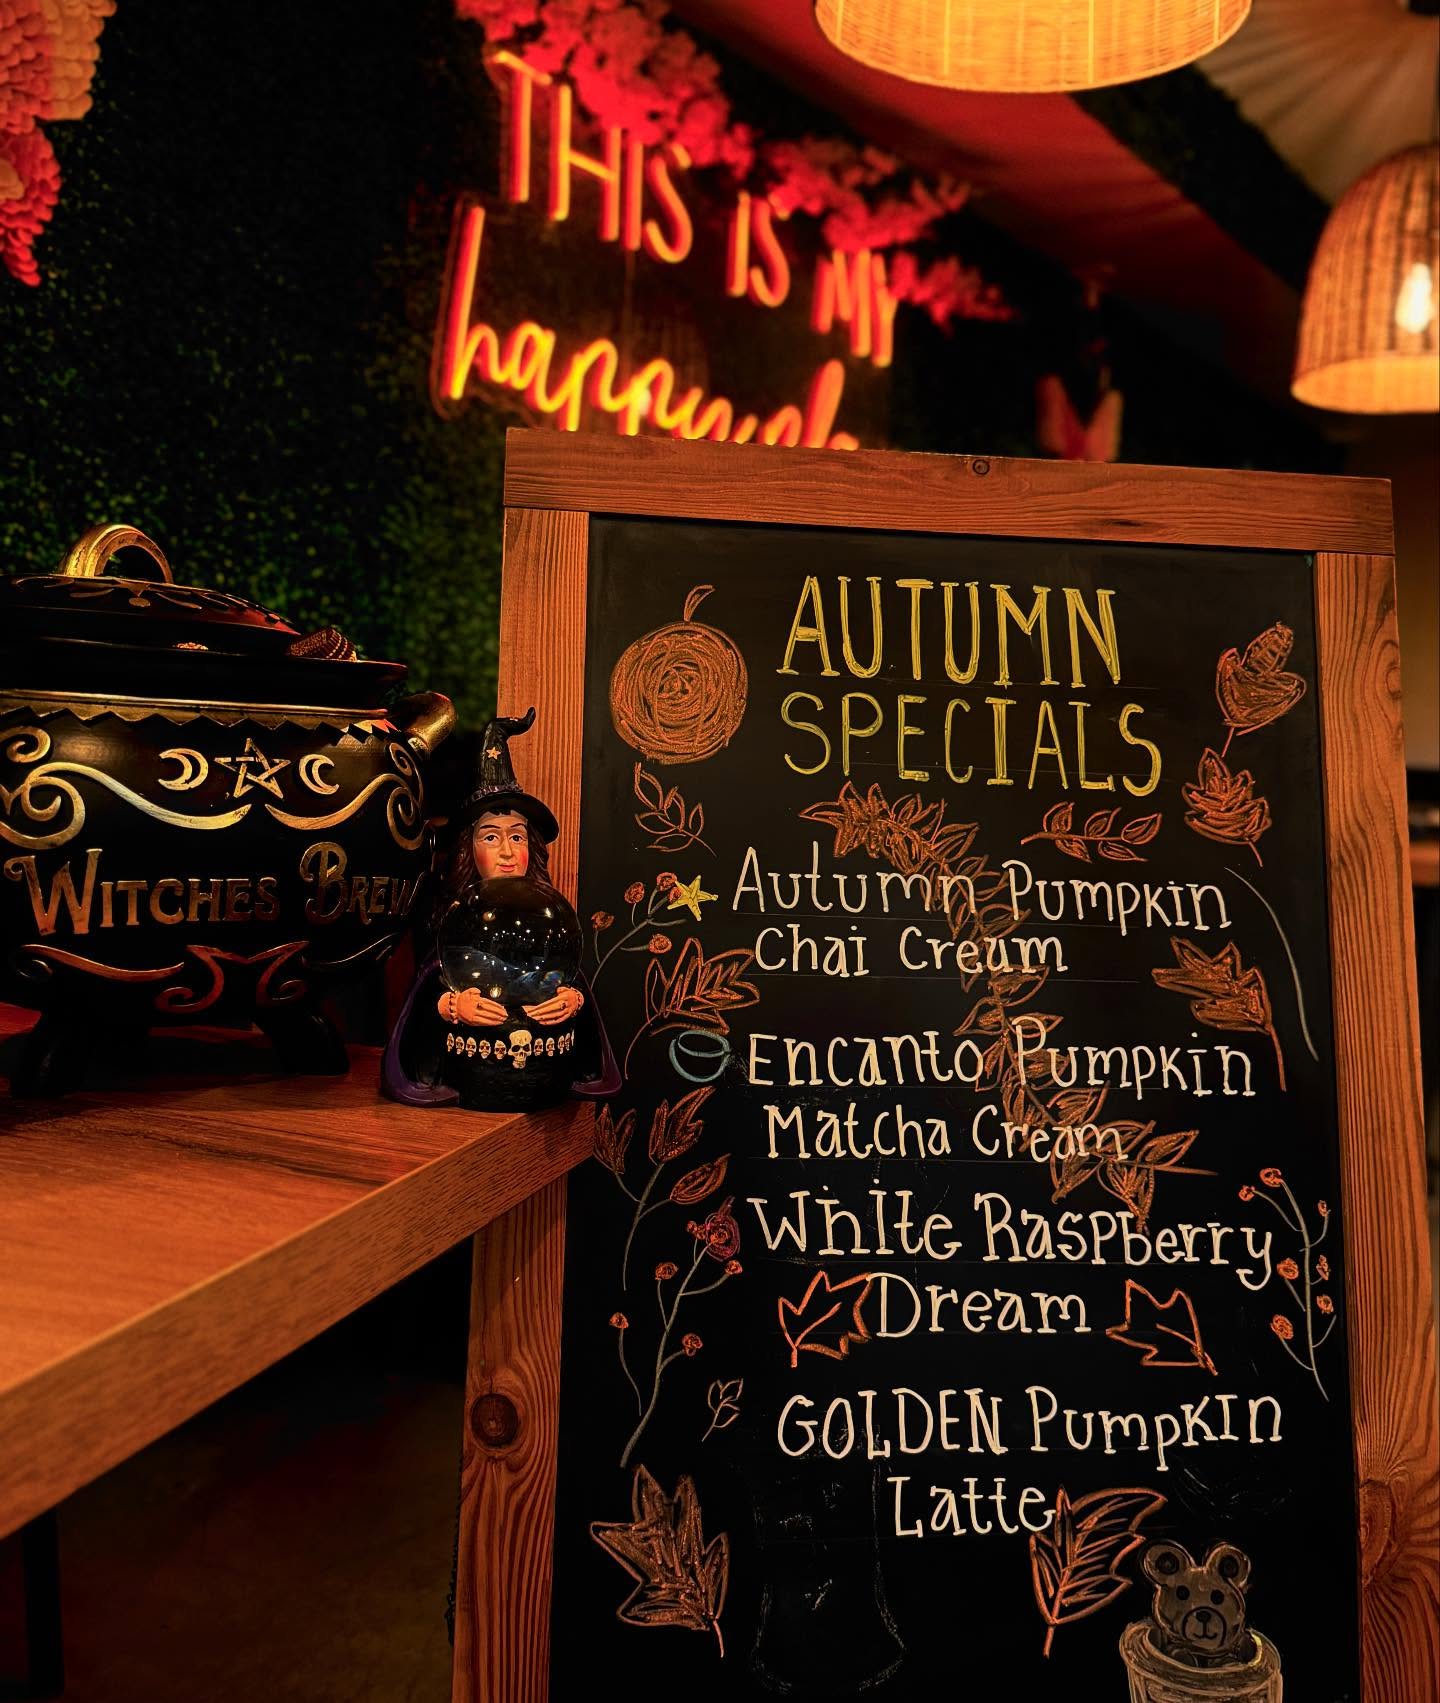 THIS IS MY
WITCHES BREW
AUTUMN
SPECIALS
Autumn Pumpkin
Chai Cream
Encanto Pumpkin
Matcha Cream
White Raspberry
Dream
GOLDEN Pumpkin
Latte